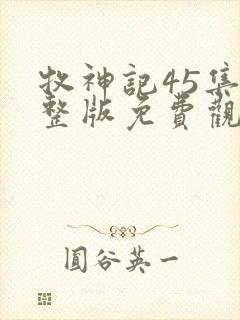 牧神記45集
整版免費觀
圓谷英一